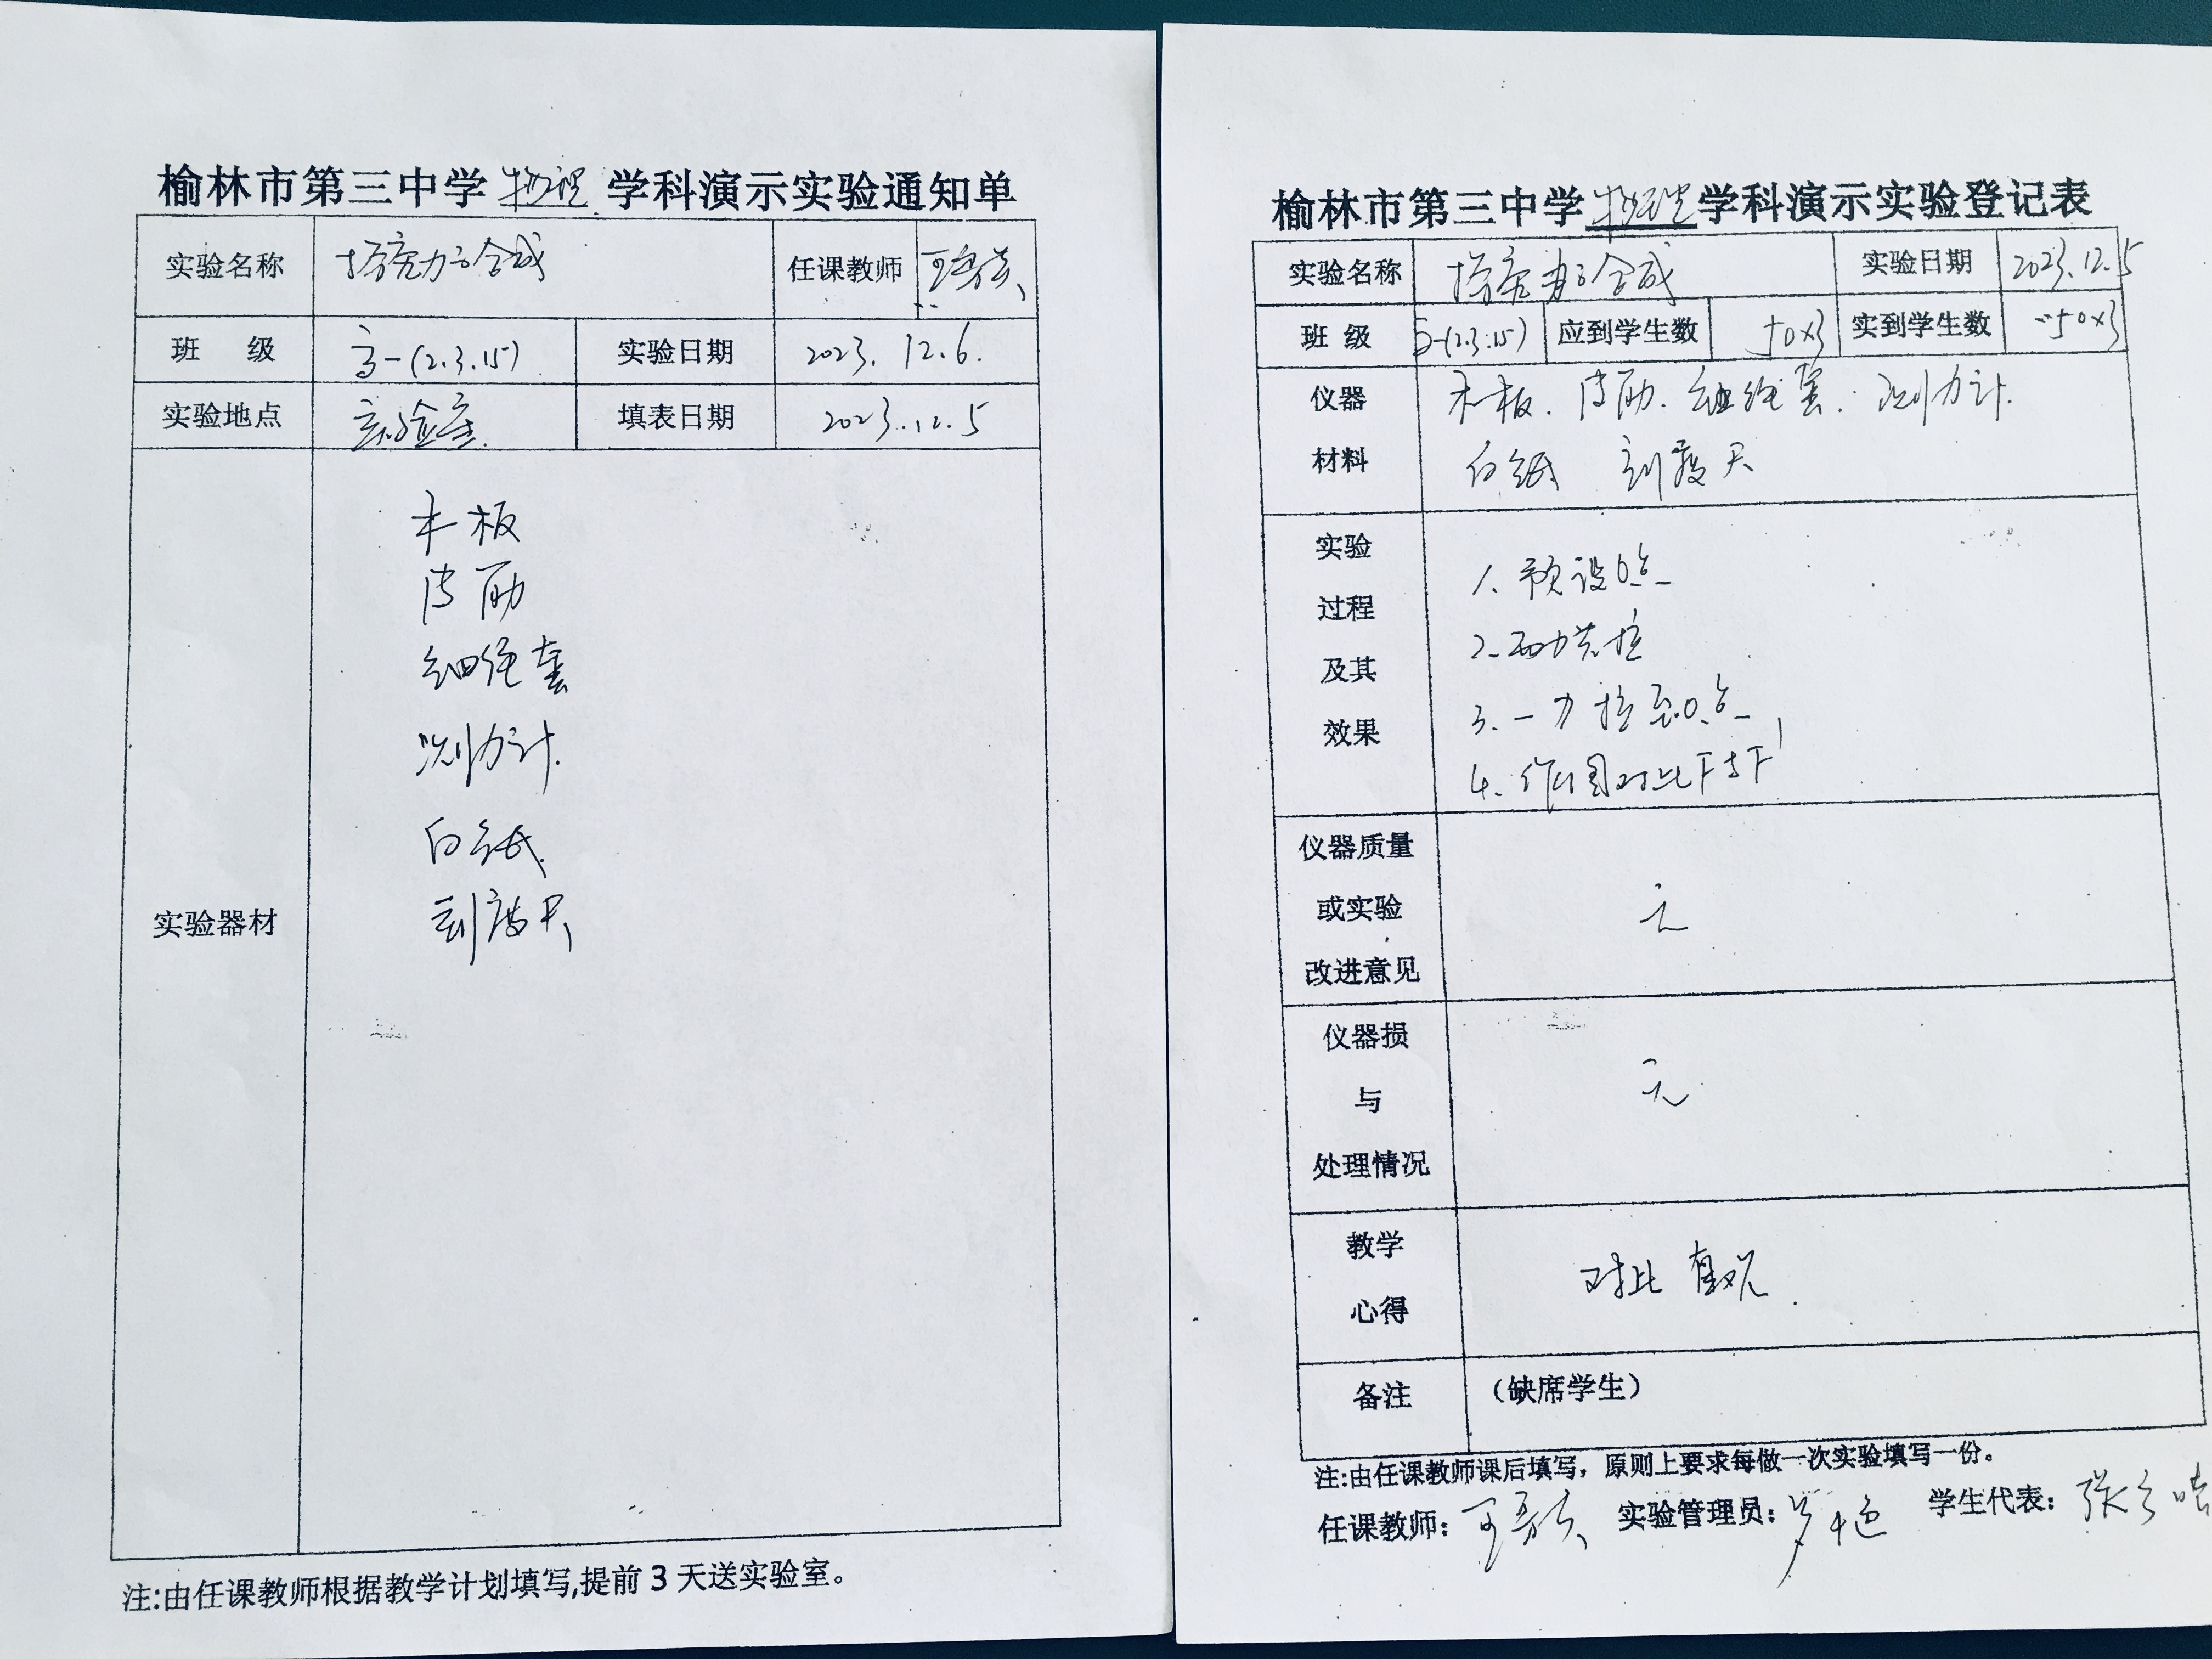 榆林市第三中学物理学科演示实验通知单
实验名称 探究力的合成 任课教师
班 级 高一(2.3.15) 实验日期 2023.12.6.
实验地点 实验室 填表日期 2023.12.5
实验器材
木板
皮筋
细绳套
测力计.
白纸.
刻度尺
注:由任课教师根据教学计划填写,提前3天送实验室。
榆林市第三中学物理学科演示实验登记表
实验名称 探究力的合成 实验日期 2023.12.5
班 级 高一(2.3.15) 应到学生数 50×3 实到学生数 50×3
仪器
材料
木板.皮筋.细绳套.测力计.
白纸 刻度尺
实验
过程
及其
效果
1.预设O点
2.两力共拉
3.一力拉至O点
4.作图对比F与F'
仪器质量
或实验
改进意见
无
仪器损
与
处理情况
无
教学
心得
对比 直观.
备注 (缺席学生)
注:由任课教师课后填写,原则上要求每做一次实验填写一份。
任课教师: 实验管理员: 学生代表: